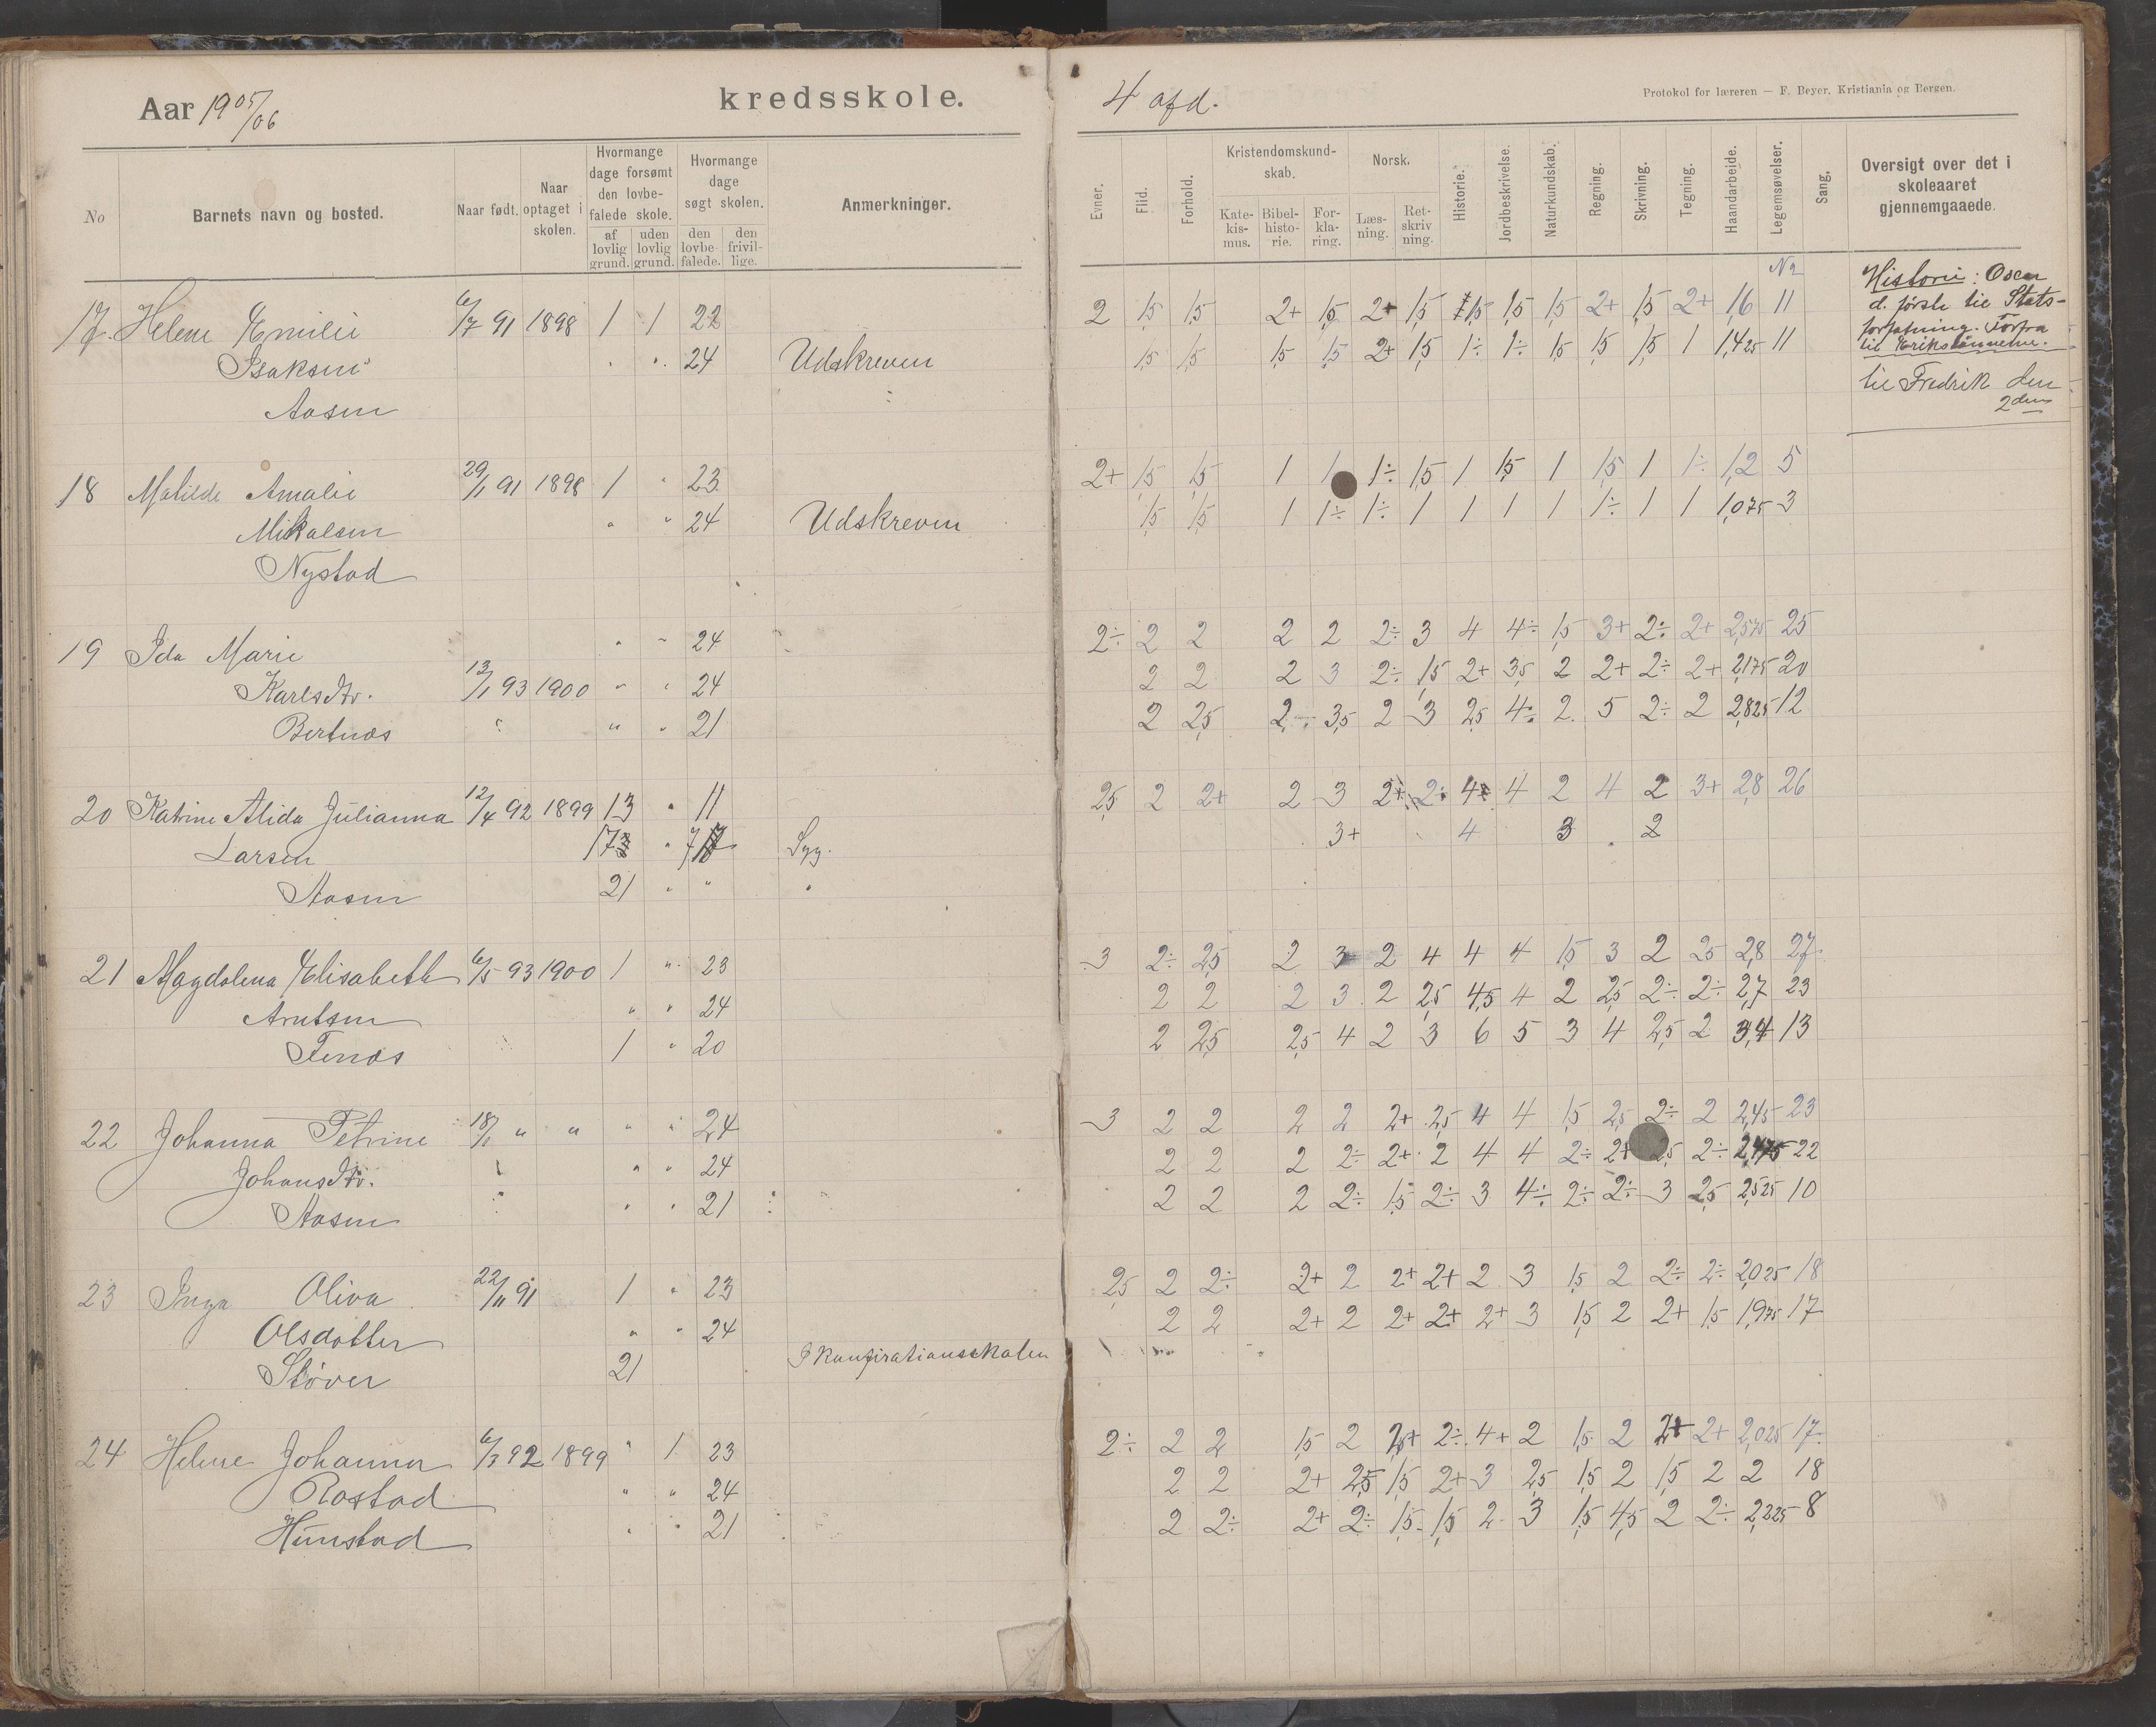 Aar 1905/06 kredsskole.
4 afd.
Protokol for læreren — F. Beyer, Kristiania og Bergen.
No
Barnets navn og bosted.
Naar født.
Naar optaget i skolen.
Hvormange dage forsømt den lovbefalede skole.
af lovlig grund.
uden lovlig grund.
Hvormange dage søgt skolen.
den lovbefalede.
den frivillige.
Anmerkninger.
Evner.
Flid.
Forhold.
Kristendomskundskab.
Katekismus.
Bibelhistorie.
Forklaring.
Norsk.
Læsning.
Retskrivning.
Historie.
Jordbeskrivelse.
Naturkundskab.
Regning.
Skrivning.
Tegning.
Haandarbeide.
Legemsøvelser.
Sang.
Oversigt over det i skoleaaret gjennemgaaede.
17. Helene Emilie 6/7 91 1898 1 1 22 2 1,5 1,5 2+ 1,5 2+ 1,5 1,5 1,5 1,5 2+ 1,5 2+ 1,6 11
Isaksen " " 24 Udskreven 1,5 1,5 1,5 1,5 2+ 1,5 1÷ 1÷ 1,5 1,5 1,5 1 1,425 11
Aasen
Historie: Oscar
d. første til Stats-
forfatning. Forfra
til Frediik den
2den
18 Matilde Amalie 29/1 91 1898 1 " 23 2+ 1,5 1,5 1 1 1÷ 1,5 1 1,5 1 1,5 1 1÷ 1,2 5
Mikalsen " " 24 Udskreven 1,5 1,5 1 1÷ 1÷ 1 1 1 1 1÷ 1 1 1,075 3
Nystad
19 Ida Marie " " 24 2÷ 2 2 2 2 2÷ 3 4 4÷ 1,5 3+ 2÷ 2+ 2,575 25
Karlsdtr. 13/1 93 1900 " " 24 2 2 2 3 2÷ 1,5 2+ 3,5 2 2+ 2÷ 2+ 2,175 20
Bertnæs " " 21 2 2,5 2 3,5 2 3 2,5 4÷ 2 5 2÷ 2 2,825 12
20 Katrine Alida Julianna 12/4 92 1899 13 " 11 2,5 2 2+ 2 3 2+ 2÷ 4 4 2 4 2 3+ 2,8 26
Larsen 17 " 7 Syg. 3+ 4 3 2
Aasen 21 " " "
21 Magdalena Elisabeth 6/5 93 1900 1 " 23 3 2÷ 2,5 2 3 2 4 4 4 1,5 3 2 2,5 2,8 27
Arntsen " " 24 2 2 2 3 2 2,5 4,5 4 2 2,5 2÷ 2÷ 2,7 23
Tenæs 1 " 20 2 2,5 2,5 4 2 3 6 5 3 4 2,5 2 3,4 13
22 Johanna Petrine 18/1 " " " " 24 3 2 2 2 2 2+ 2,5 4 4 1,5 2,5 2÷ 2 2,45 23
Johansdtr. " " 24 2 2 2 2÷ 2+ 2 4 4 2÷ 2+ 2,5 2÷ 2,475 22
Aasen " " 21 2 2 2 2÷ 1,5 2÷ 3 4÷ 2÷ 2÷ 3 2,5 2,525 10
23 Inga Oliva 22/11 91 1 " 23 2,5 2 2÷ 2+ 2 2+ 2+ 2 3 1,5 2 2÷ 2÷ 2,025 18
Olsdatter " " 24 2 2 2+ 2 2+ 2+ 2+ 3 1,5 2 2+ 1,5 1,975 17
Støver 21 I konfirationsskolen
24 Helene Johanna 6/3 92 1899 " 1 23 2÷ 2 2 1,5 2 2+ 2÷ 4+ 2 1,5 2 2+ 2+ 2,025 17
Rostad " " 24 2 2 2+ 2,5 1,5 2+ 3 2,5 1,5 2 1,5 2 2 18
Hunstad " " 21 2 2÷ 2+ 2÷ 1,5 1,5 2 3 1,5 4,5 2 2÷ 2,225 8